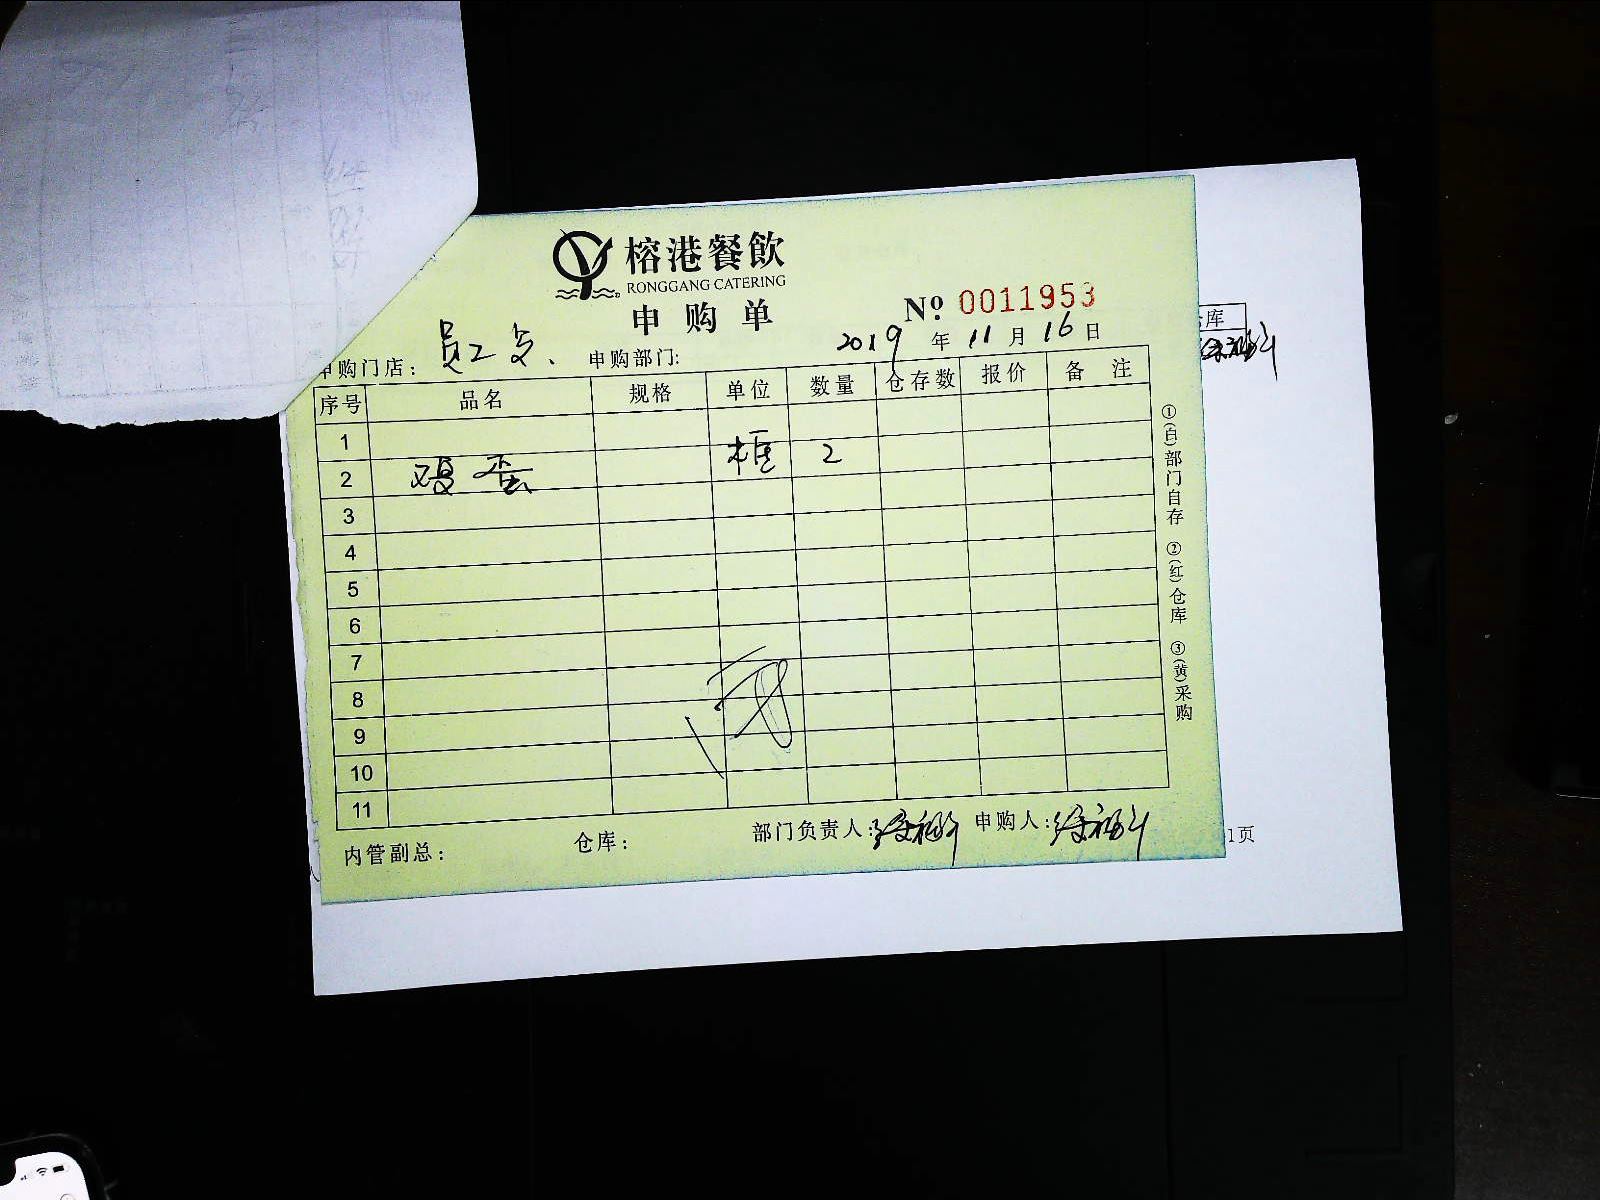 榕港餐飲
RONGGANG CATERING
申购单
№ 0011953
2019年11月16日
申购门店：员工 申购部门:
序号 品名 规格 单位 数量 仓存数 报价 备注
1
2 鸡蛋 框 2
3
4
5
6
7
8
9
10
11
内管副总： 仓库： 部门负责人: 申购人:
①(白)部门自存 ②(红)仓库 ③(黄)采购
库
1页